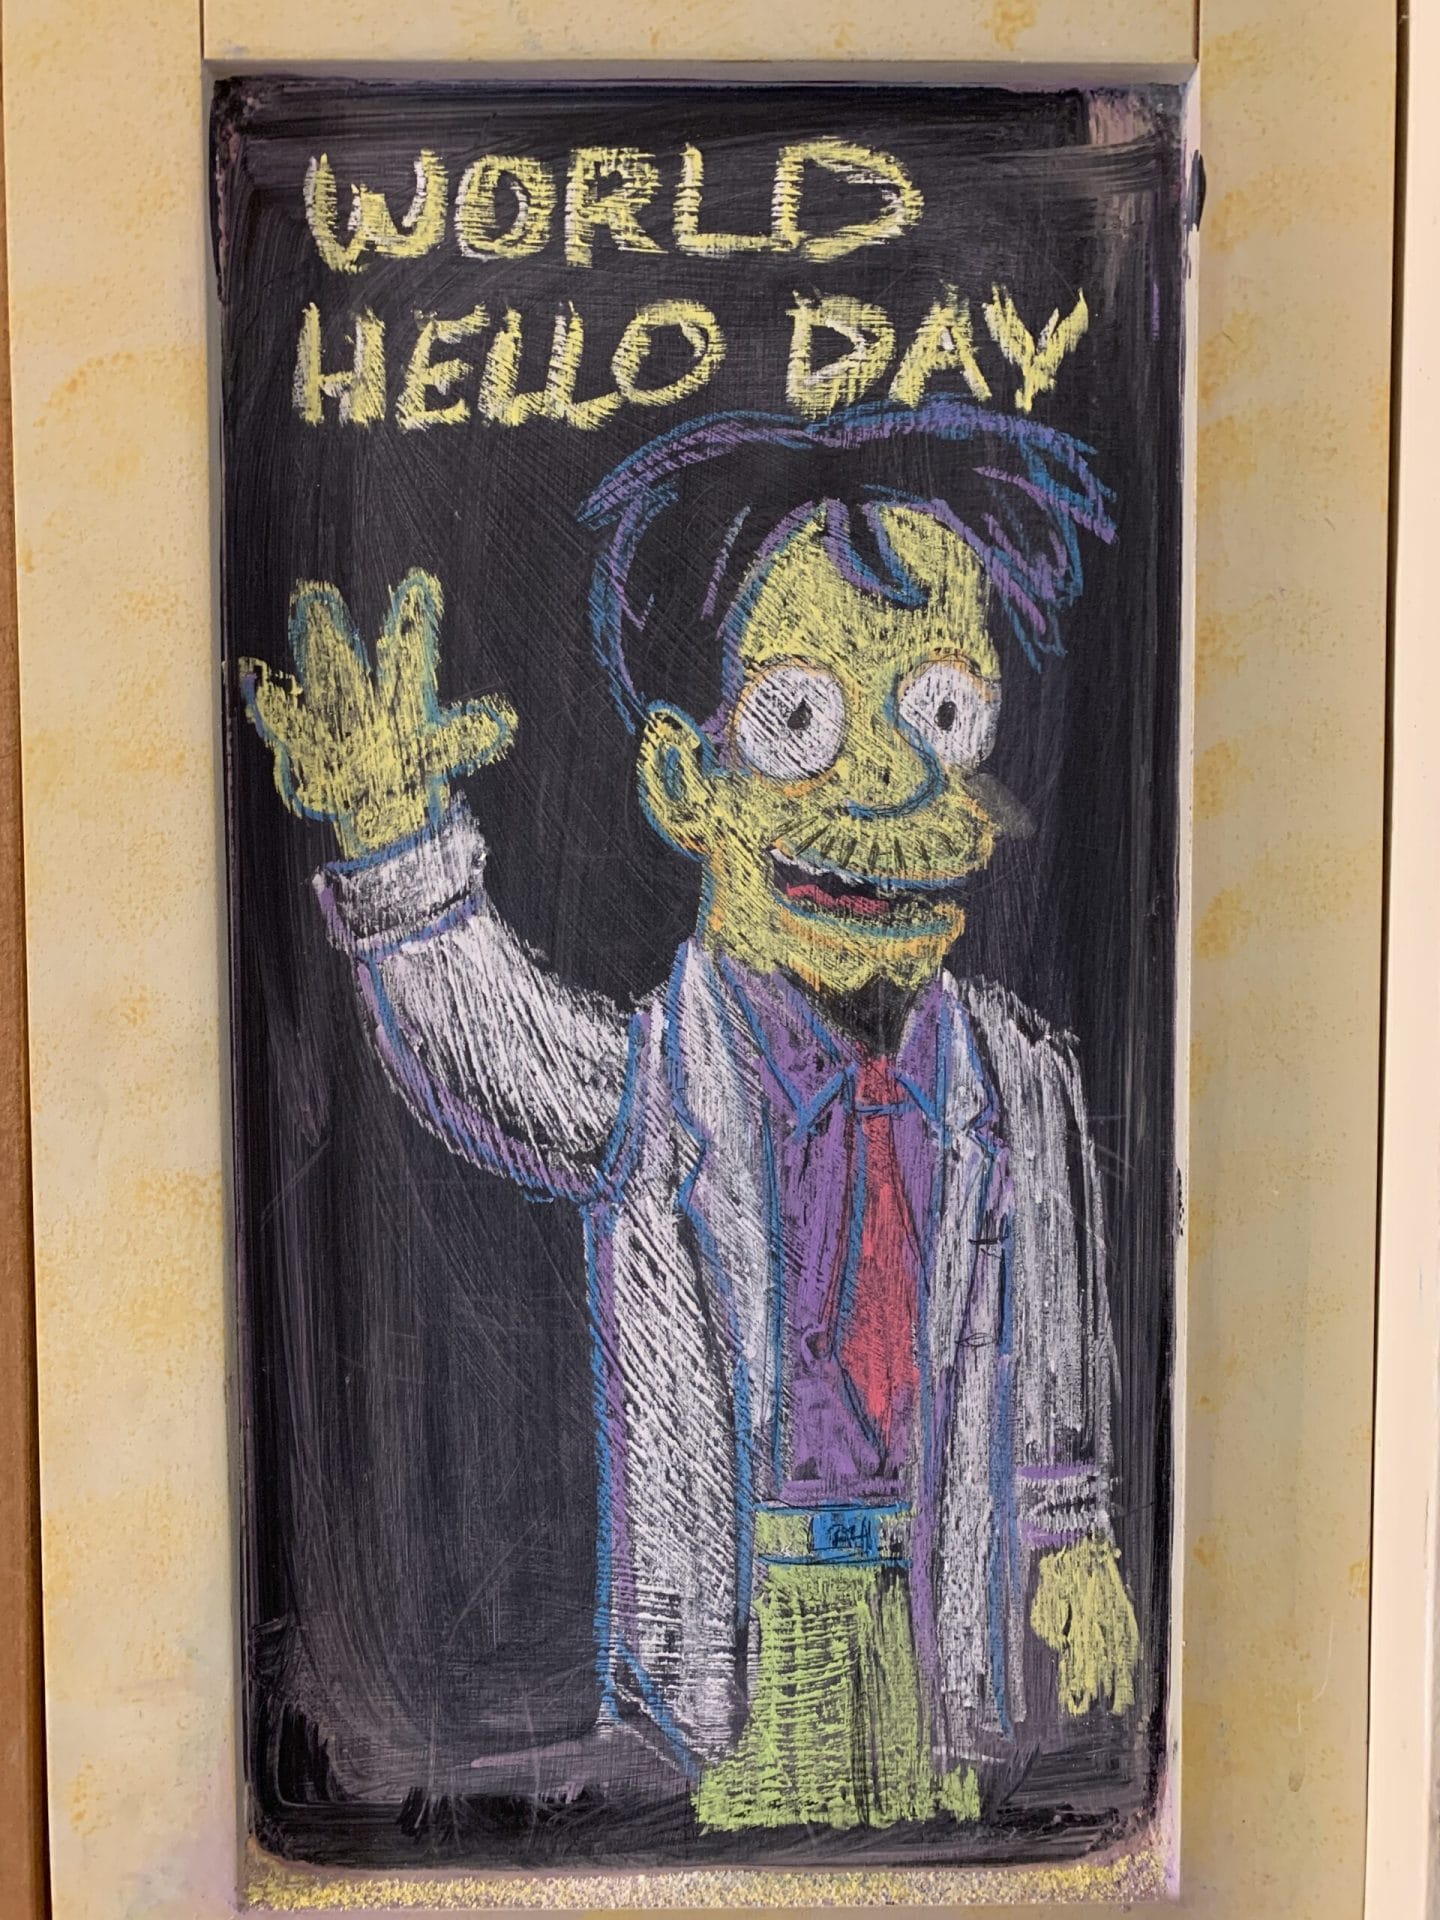 WORLD
HELLO DAY